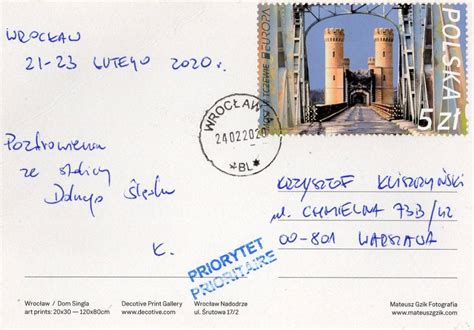 WROCŁAW
21-23 LUTEGO 2020 r.
Pozdrowienia
ze stolicy
Dolnego Śląska
K.
EUROPA
POLSKA
5 zł
WROCŁAW
24022020
*BL*
KRZYSZTOF KLISZCZYŃSKI
ul. CHMIELNA 73B/42
00-801 WARSZAWA
PRIORYTET
PRIORITAIRE
Wrocław / Dom Singla
art prints: 20x30 — 120x80cm
Decotive Print Gallery
www.decotive.com
Wrocław Nadodrze
ul. Śrutowa 17/2
Mateusz Gzik Fotografia
www.mateuszgzik.com